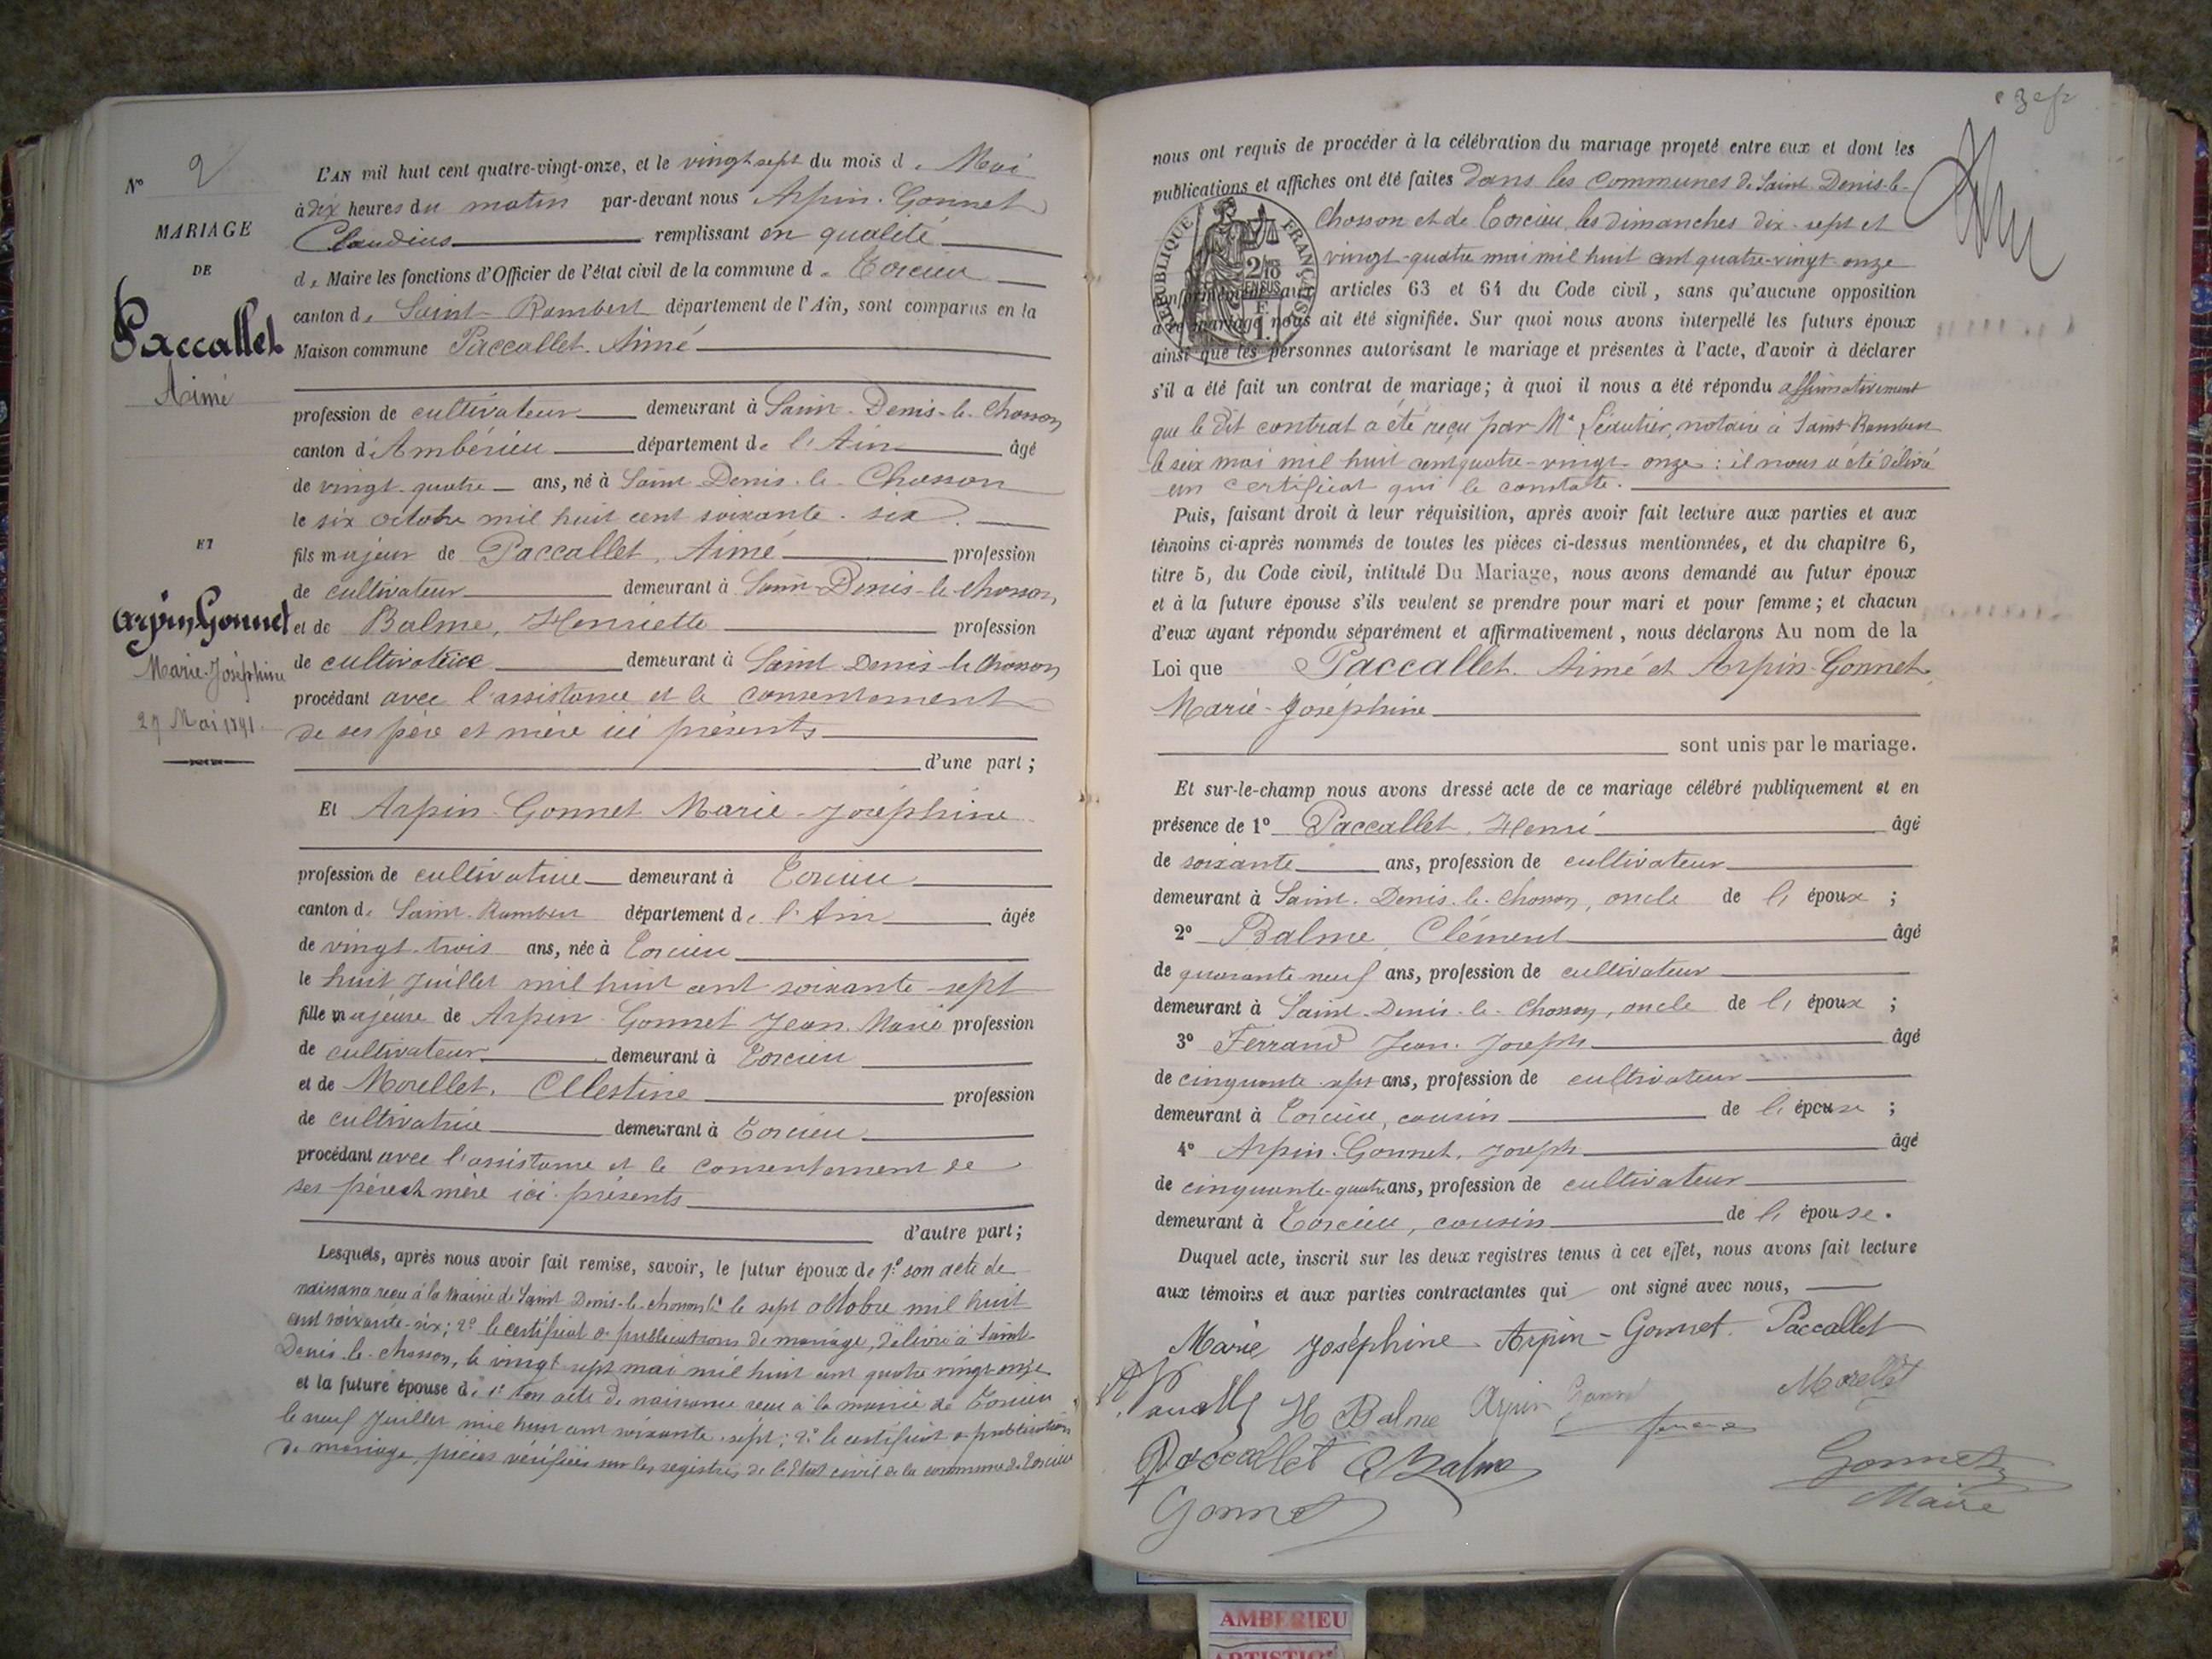 N° 2
MARIAGE
DE
Paccallet
Aimé
ET
Arpin Gonnet
Marie-Joséphine
27 Mai 1891.
L'AN mil huit cent quatre-vingt-onze, et le vingt sept du mois de Mai
à dix heures du matin par-devant nous Arpin-Gonnet
Claudius remplissant en qualité
de Maire les fonctions d'Officier de l'état civil de la commune de Torcieu
canton de Saint-Rambert département de l'Ain, sont comparus en la
Maison commune Paccallet Aimé
profession de cultivateur demeurant à Saint-Denis-le-Chosson
canton d'Ambérieu département de l'Ain âgé
de vingt-quatre ans, né à Saint-Denis-le-Chosson
le six octobre mil huit cent soixante-six.
fils majeur de Paccallet, Aimé profession
de cultivateur demeurant à Saint-Denis-le-Chosson,
et de Balme, Henriette profession
de cultivatrice demeurant à Saint-Denis-le-Chosson
procédant avec l'assistance et le consentement
de ses père et mère ici présents
d'une part ;
Et Arpin-Gonnet Marie-Joséphine
profession de cultivatrice demeurant à Torcieu
canton de Saint-Rambert département de l'Ain âgée
de vingt-trois ans, née à Torcieu
le huit Juillet mil huit cent soixante-sept
fille majeure de Arpin-Gonnet Jean-Marie profession
de cultivateur demeurant à Torcieu
et de Morellet, Célestine profession
de cultivatrice demeurant à Torcieu
procédant avec l'assistance et le consentement de
ses père et mère ici présents
d'autre part ;
Lesquels, après nous avoir fait remise, savoir, le futur époux de 1° son acte de
naissance reçu à la Mairie de Saint-Denis-le-Chosson le sept octobre mil huit
cent soixante-six ; 2° le certificat de publications de mariage, délivré à Saint-
Denis-le-Chosson, le vingt-sept mai mil huit cent quatre vingt-onze
et la future épouse de 1° son acte de naissance reçu à la mairie de Torcieu
le neuf Juillet mil huit cent soixante-sept ; 2° le certificat de publication
de mariage, pièces vérifiées sur les registres de l'Etat civil de la commune de Torcieu
nous ont requis de procéder à la célébration du mariage projeté entre eux et dont les
publications et affiches ont été faites dans les communes de Saint-Denis-le-
Chosson et de Torcieu, les dimanches dix-sept et
vingt-quatre mai mil huit cent quatre-vingt-onze
RÉPUBLIQUE FRANÇAISE
2/10 EN SUS
1 F.
conformément aux articles 63 et 64 du Code civil, sans qu'aucune opposition
à ce mariage nous ait été signifiée. Sur quoi nous avons interpellé les futurs époux
ainsi que les personnes autorisant le mariage et présentes à l'acte, d'avoir à déclarer
s'il a été fait un contrat de mariage ; à quoi il nous a été répondu affirmativement
que le dit contrat a été reçu par Me Léautier, notaire à Saint-Rambert
le seix mai mil huit cent quatre-vingt-onze : il nous a été délivré
un certificat qui le constate.
Puis, faisant droit à leur réquisition, après avoir fait lecture aux parties et aux
témoins ci-après nommés de toutes les pièces ci-dessus mentionnées, et du chapitre 6,
titre 5, du Code civil, intitulé Du Mariage, nous avons demandé au futur époux
et à la future épouse s'ils veulent se prendre pour mari et pour femme ; et chacun
d'eux ayant répondu séparément et affirmativement, nous déclarons Au nom de la
Loi que Paccallet Aimé et Arpin-Gonnet
Marie-Joséphine
sont unis par le mariage.
Et sur-le-champ nous avons dressé acte de ce mariage célébré publiquement et en
présence de 1° Paccallet, Henri âgé
de soixante ans, profession de cultivateur
demeurant à Saint-Denis-le-Chosson, oncle de l'époux ;
2° Balme, Clément âgé
de quarante-neuf ans, profession de cultivateur
demeurant à Saint-Denis-le-Chosson, oncle de l'époux ;
3° Ferrand Jean-Joseph âgé
de cinquante-sept ans, profession de cultivateur
demeurant à Torcieu, cousin de l'épouse ;
4° Arpin-Gonnet, Joseph âgé
de cinquante-quatre ans, profession de cultivateur
demeurant à Torcieu, cousin de l'épouse.
Duquel acte, inscrit sur les deux registres tenus à cet effet, nous avons fait lecture
aux témoins et aux parties contractantes qui ont signé avec nous,
Marie Joséphine Arpin-Gonnet. Paccallet
H Balme Arpin Gonnet Morellet
Paccallet C Balme
Gonnet
Gonnet
Maire
AMBERIEU